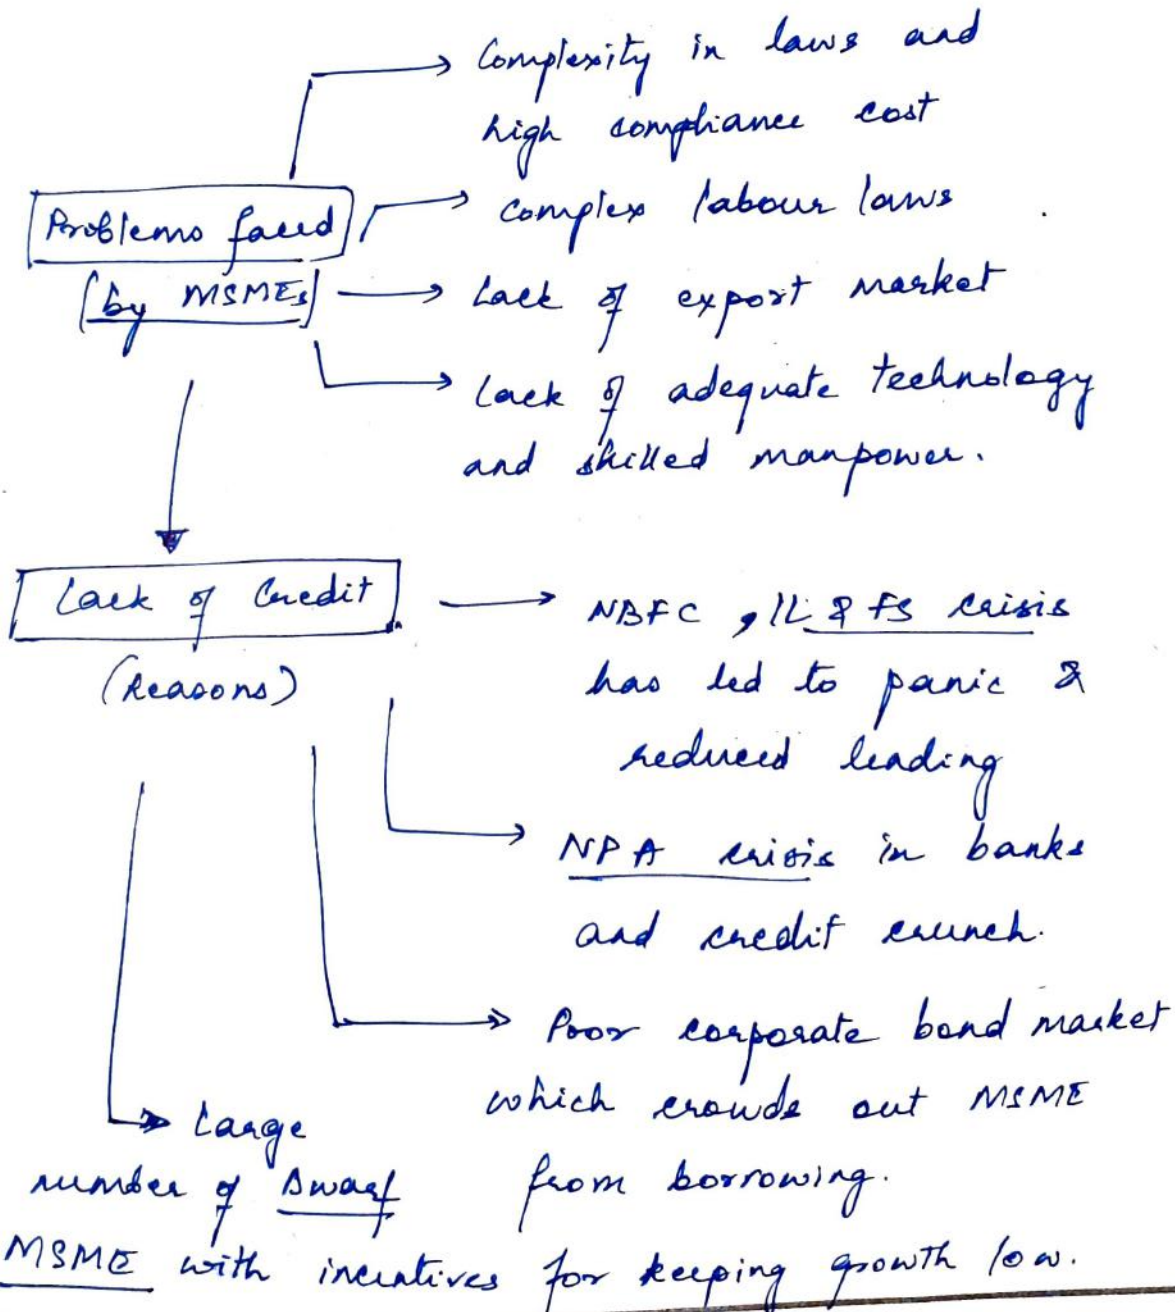 Complexity in laws and
high compliance cost
Problems faced
by MSMEs
Complex labour laws
Lack of export market
Lack of adequate technology
and skilled manpower.
Lack of Credit
(Reasons)
NBFC, IL & FS crisis
has led to panic &
reduced lending
NPA crisis in banks
and credit crunch.
Poor corporate bond market
which crowds out MSME
from borrowing.
Large
number of Dwarf
MSME with incentives for keeping growth low.